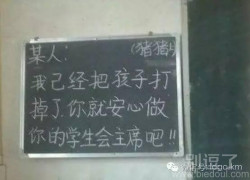 某人: (猪猪)
我已经把孩子打
掉了.你就安心做
你的学生会主席吧!!
别逗了
www.biedoul.com